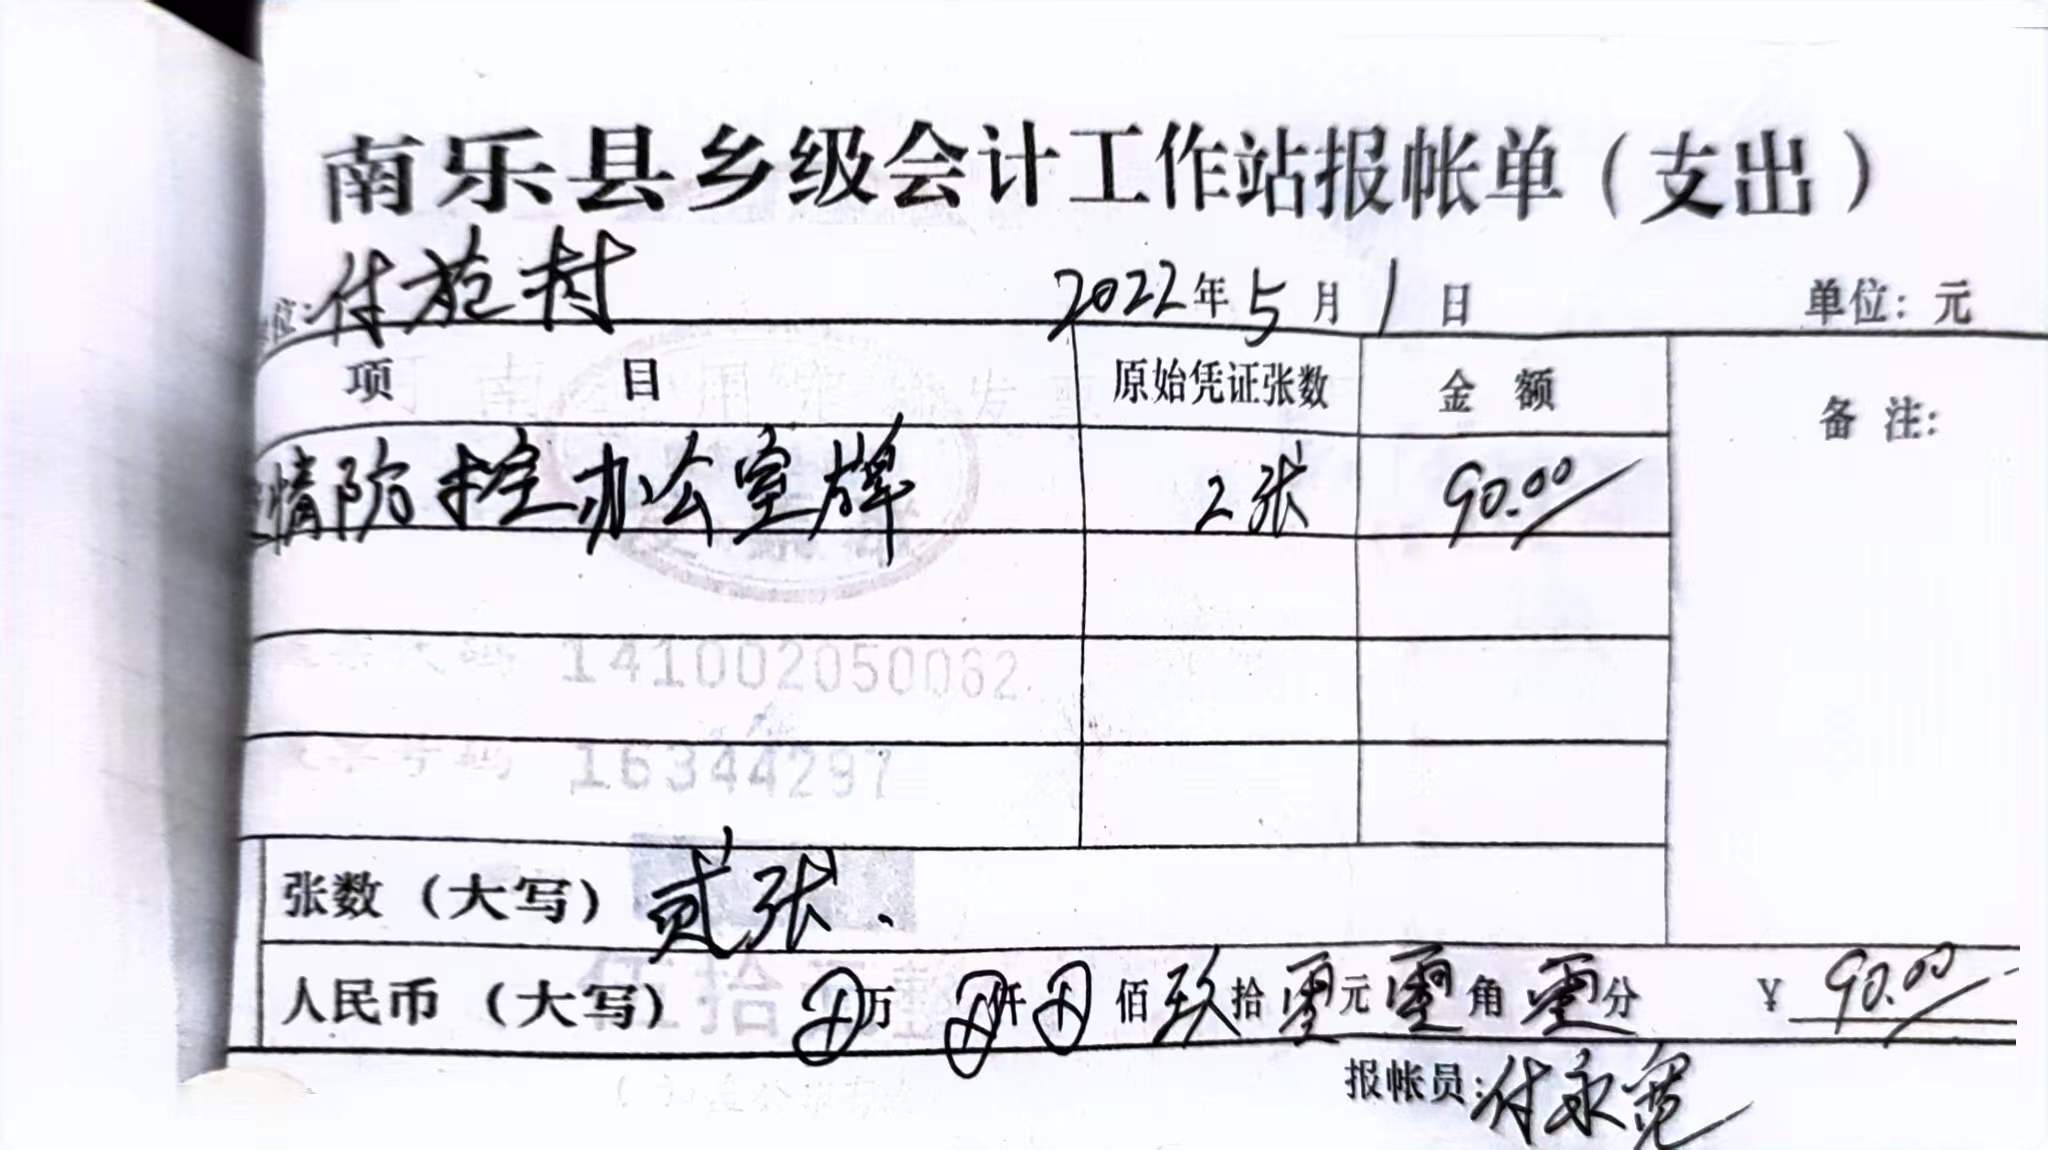 南乐县乡级会计工作站报帐单（支出）
位：付苑村 2022年5月1日 单位：元
项 目 原始凭证张数 金 额 备 注：
情防控办公室牌 2张 90.00
141002050062
16344297
张数（大写） 贰张.
人民币（大写） 万 仟 佰 玖 拾 零 元 零 角 零 分 ¥ 90.00
报帐员：付永宽